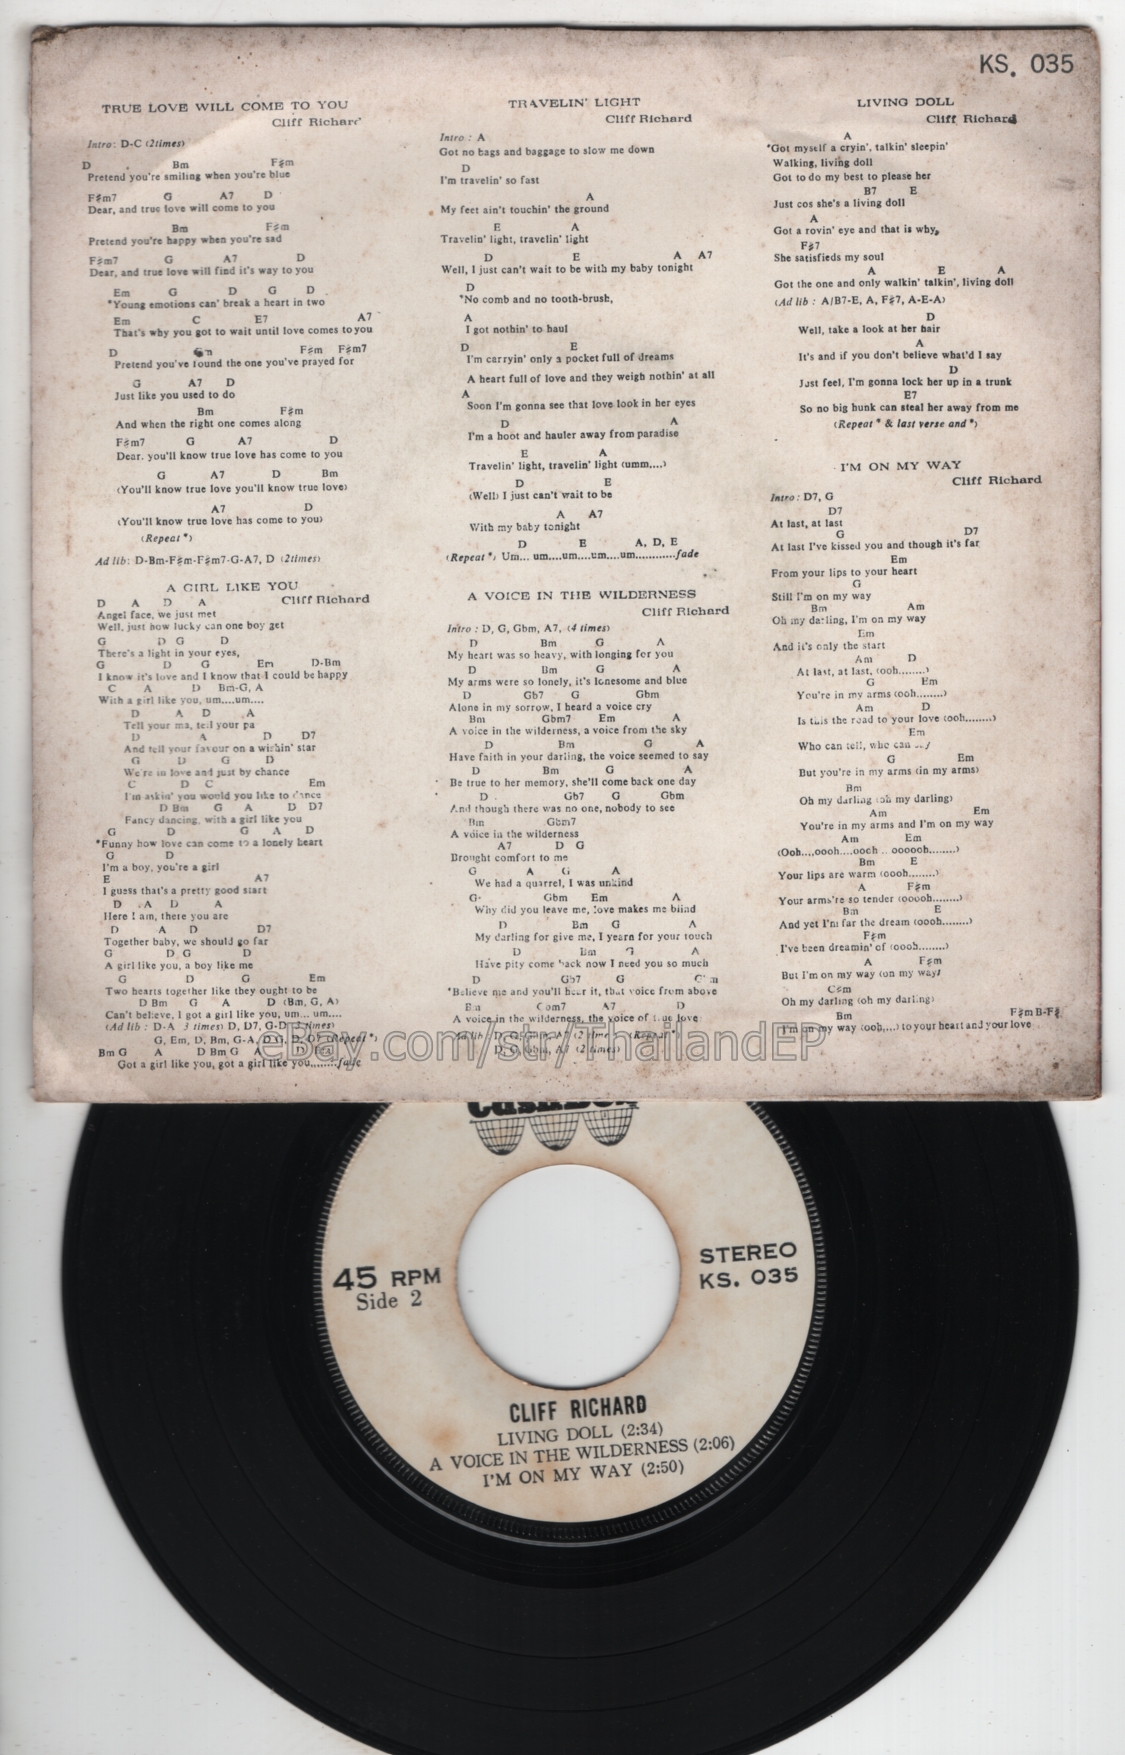 KS. 035
TRUE LOVE WILL COME TO YOU
Cliff Richard
Intro: D-C (2times)
D Bm F♯m
Pretend you're smiling when you're blue
F♯m7 G A7 D
Dear, and true love will come to you
Bm F♯m
Pretend you're happy when you're sad
F♯m7 G A7 D
Dear, and true love will find it's way to you
Em G D G D
*Young emotions can' break a heart in two
Em C E7 A7
That's why you got to wait until love comes to you
D F♯m F♯m7
Pretend you've found the one you've prayed for
G A7 D
Just like you used to do
Bm F♯m
And when the right one comes along
F♯m7 G A7 D
Dear. you'll know true love has come to you
G A7 D Bm
(You'll know true love you'll know true love)
A7 D
(You'll know true love has come to you)
(Repeat *)
Ad lib: D-Bm-F♯m-F♯m7-G-A7, D (2times)
A GIRL LIKE YOU
Cliff Richard
D A D A
Angel face, we just met
Well, just how lucky can one boy get
G D G D
There's a light in your eyes,
G D G Em D-Bm
I know it's love and I know that I could be happy
C A D Bm-G, A
With a girl like you, um....um....
D A D A
Tell your ma, tell your pa
D A D D7
And tell your favour on a wishin' star
G D G D
We're in love and just by chance
C D C Em
I'm askin' you would you like to dance
D Bm G A D D7
Fancy dancing, with a girl like you
G D G A D
*Funny how love can come to a lonely heart
G D
I'm a boy, you're a girl
E A7
I guess that's a pretty good start
D A D A
Here I am, there you are
D A D D7
Together baby, we should go far
G D G D
A girl like you, a boy like me
G D G Em
Two hearts together like they ought to be
D Bm G A D (Bm, G, A)
Can't believe, I got a girl like you, um... um....
(Ad lib : D-A 3 times) D, D7, G-D (3 times)
G, Em, D, Bm, G-A, D G, D D7 (Repeat *)
Bm G A D Bm G A D
Got a girl like you, got a girl like you........fade
TRAVELIN' LIGHT
Cliff Richard
Intro : A
Got no bags and baggage to slow me down
D
I'm travelin' so fast
A
My feet ain't touchin' the ground
E A
Travelin' light, travelin' light
D E A A7
Well, I just can't wait to be with my baby tonight
D
*No comb and no tooth-brush,
A
I got nothin' to haul
D E
I'm carryin' only a pocket full of dreams
A heart full of love and they weigh nothin' at all
A
Soon I'm gonna see that love look in her eyes
D A
I'm a hoot and hauler away from paradise
E A
Travelin' light, travelin' light (umm....)
D E
(Well) I just can't wait to be
A A7
With my baby tonight
D E A, D, E
(Repeat *) Um... um....um....um....um............fade
A VOICE IN THE WILDERNESS
Cliff Richard
Intro : D, G, Gbm, A7, (4 times)
D Bm G A
My heart was so heavy, with longing for you
D Bm G A
My arms were so lonely, it's lonesome and blue
D Gb7 G Gbm
Alone in my sorrow, I heard a voice cry
Bm Gbm7 Em A
A voice in the wilderness, a voice from the sky
D Bm G A
Have faith in your darling, the voice seemed to say
D Bm G A
Be true to her memory, she'll come back one day
D Gb7 G Gbm
And though there was no one, nobody to see
Bm Gbm7
A voice in the wilderness
A7 D G
Brought comfort to me
G A G A
We had a quarrel, I was unkind
G Gbm Em A
Why did you leave me, love makes me blind
D Bm G A
My darling for give me, I yearn for your touch
D Bm G A
Have pity come back now I need you so much
D Gb7 G
*Believe me and you'll hear it, that voice from above
Bm Gbm7 A7 D
A voice in the wilderness, the voice of true love
Ad lib : D, G, Gbm, A7 (2 times) (Repeat *)
D, G, Gbm, A7 (2 times)
LIVING DOLL
Cliff Richard
A
*Got myself a cryin', talkin' sleepin'
Walking, living doll
Got to do my best to please her
B7 E
Just cos she's a living doll
A
Got a rovin' eye and that is why,
F♯7
She satisfieds my soul
A E A
Got the one and only walkin' talkin', living doll
(Ad lib : A/B7-E, A, F♯7, A-E-A)
D
Well, take a look at her hair
A
It's and if you don't believe what'd I say
D
Just feel, I'm gonna lock her up in a trunk
E7
So no big hunk can steal her away from me
(Repeat * & last verse and *)
I'M ON MY WAY
Cliff Richard
Intro: D7, G
D7
At last, at last
G D7
At last I've kissed you and though it's far
Em
From your lips to your heart
G
Still I'm on my way
Bm Am
Oh my darling, I'm on my way
Em
And it's only the start
Am D
At last, at last, (ooh........)
G Em
You're in my arms (ooh........)
Am D
Is this the road to your love (ooh........)
Em
Who can tell, who can
G Em
But you're in my arms (in my arms)
Bm
Oh my darling (oh my darling)
Am Em
You're in my arms and I'm on my way
Am Em
(Ooh....oooh....oooh .. oooooh........)
Bm E
Your lips are warm (oooh........)
A F♯m
Your arms're so tender (ooooh........)
Bm E
And yet I'm far the dream (oooh........)
F♯m
I've been dreamin' of (oooh........)
A F♯m
But I'm on my way (on my way)
C♯m
Oh my darling (oh my darling)
Bm F♯m B-F♯
I'm on my way (ooh,...) to your heart and your love
eBay.com/str/ThailandEP
CashBox
45 RPM
Side 2
STEREO
KS. 035
CLIFF RICHARD
LIVING DOLL (2:34)
A VOICE IN THE WILDERNESS (2:06)
I'M ON MY WAY (2:50)